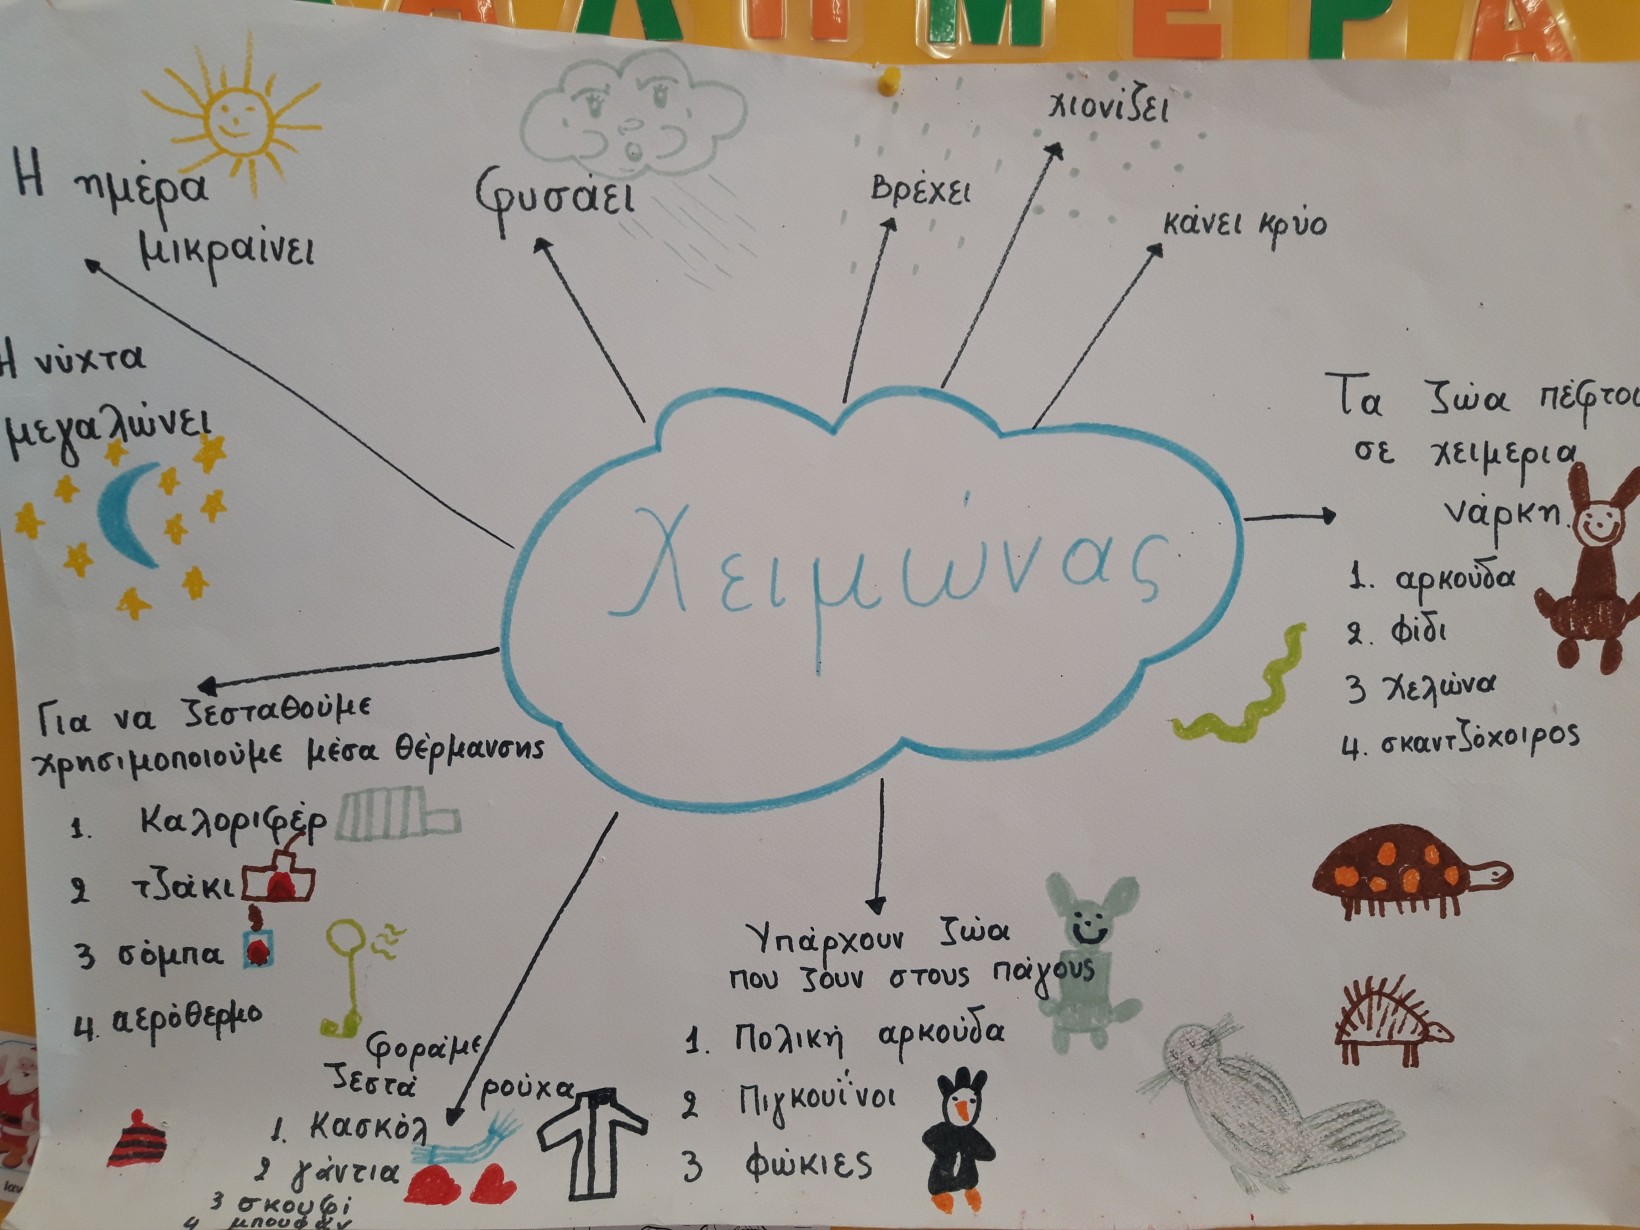 ΚΑΛΗΜΕΡΑ
Η ημέρα
μικραίνει
φυσάει
Βρέχει
χιονίζει
κάνει κρύο
Η νύχτα
μεγαλώνει
Χειμώνας
Τα ζώα πέφτου
σε χειμερια
νάρκη.
1. αρκούδα
2. φίδι
3 χελώνα
4. σκαντζόχοιρος
Για να ζεσταθούμε
χρησιμοποιούμε μέσα θέρμανσης
1. Καλοριφέρ
2 τζάκι
3 σόμπα
4. αερόθερμο
φοράμε
ζεστά ρούχα
1. Κασκόλ
2 γάντια
3 σκουφί
4 μπουφάν
Υπάρχουν ζώα
που ζουν στους πάγους
1. Πολική αρκούδα
2 Πιγκουΐνοι
3 φώκιες
Ιαν